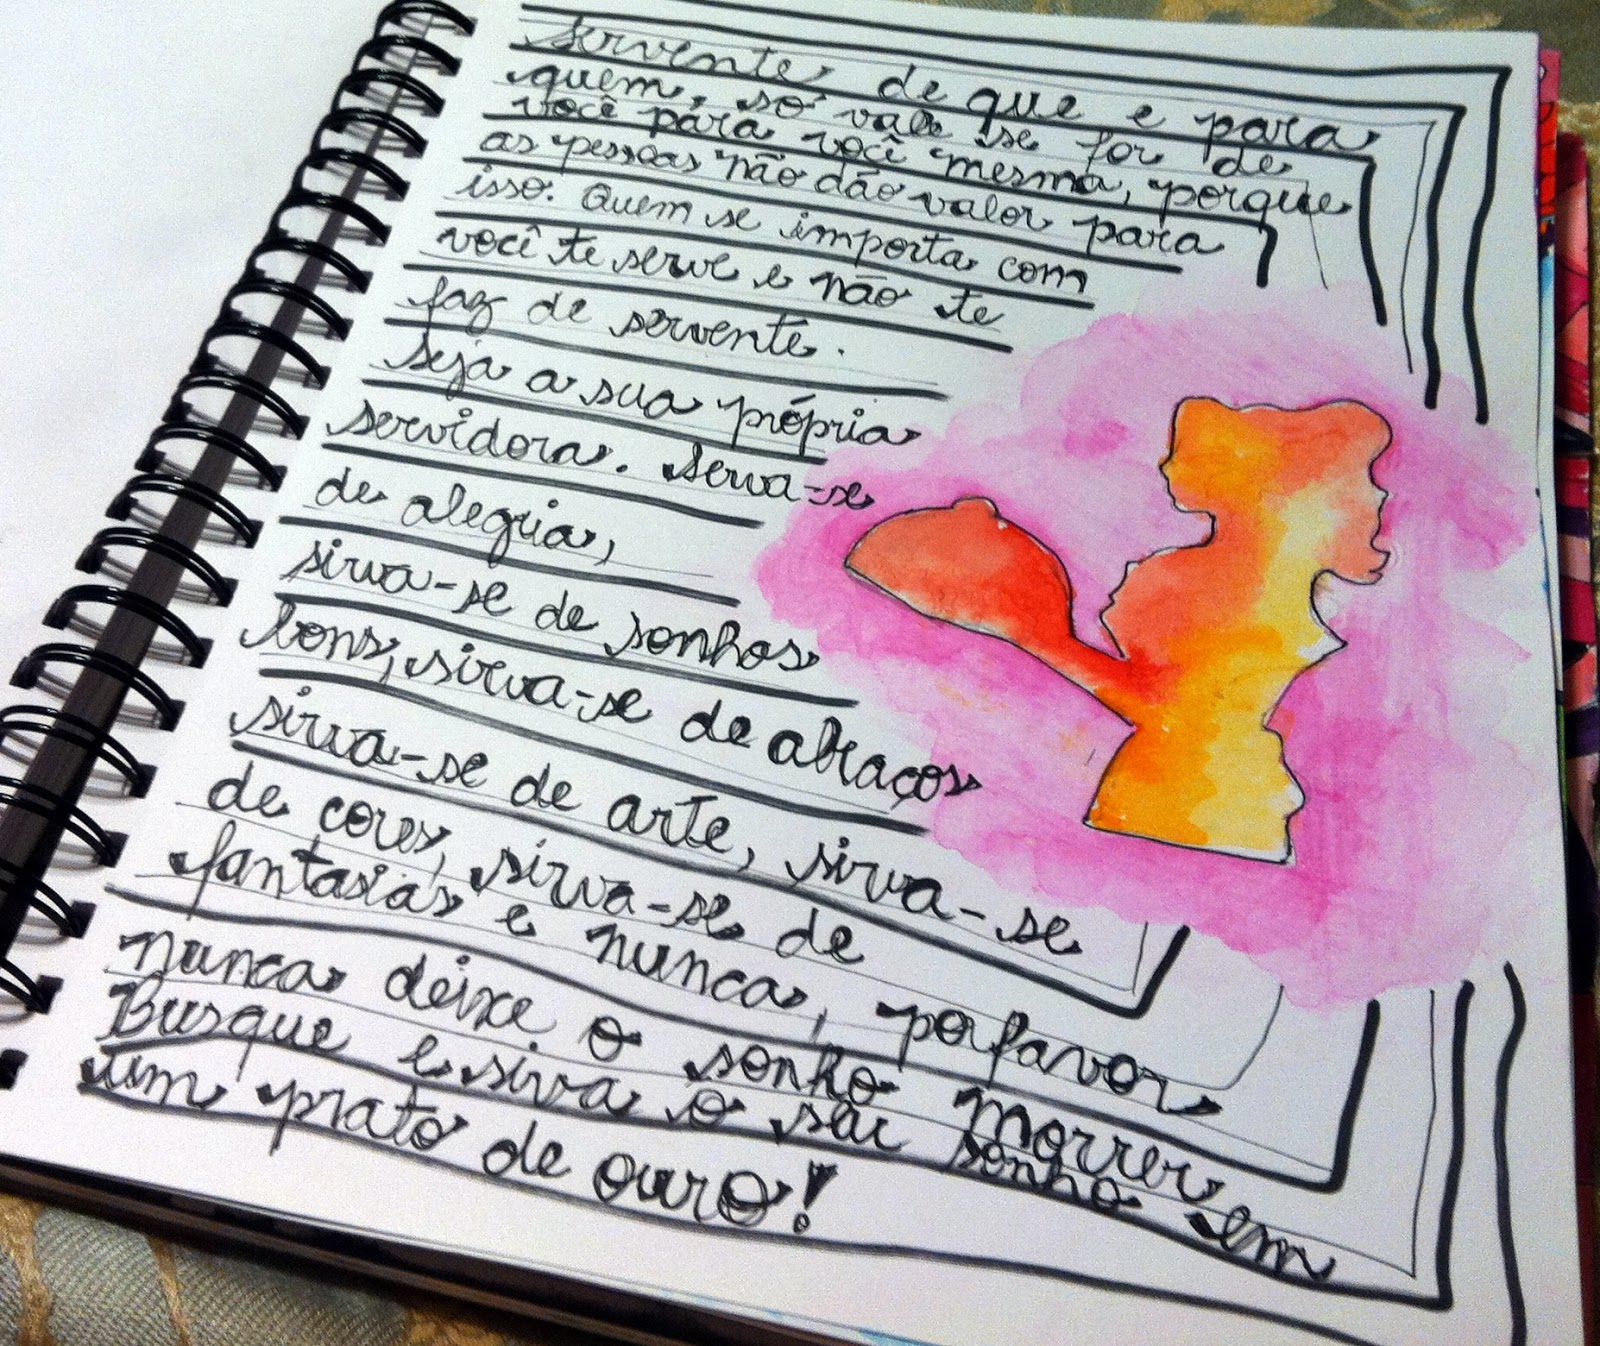 servente, de que e para
quem, só vale se for de
você para você mesma, porque
as pessoas não dão valor para
isso. Quem se importa com
você te serve e não te
faz de servente.
Seja a sua própria
servidora. Serva-se
de alegria,
sirva-se de sonhos
bons, sirva-se de abraços
sirva-se de arte, sirva-se
de cores, sirva-se de
fantasias e nunca, por favor
nunca deixe o sonho morrer
Busque e siva o seu sonho em
um prato de ouro!